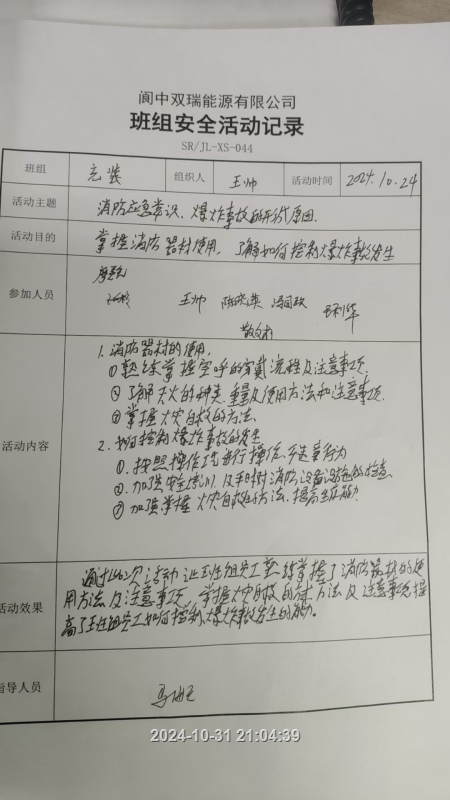 阆中双瑞能源有限公司
班组安全活动记录
SR/JL-XS-044
班组 充装 组织人 王帅 活动时间 2024.10.24
活动主题 消防应急常识、爆炸事故的形成原因.
活动目的 掌握消防器材使用,了解如何控制爆炸事故发生
参加人员
王帅 陈晓英
敬文
活动内容
1.消防器材的使用.
①熟练掌握空呼的穿戴流程及注意事项.
②了解灭火的种类、重量及使用方法和注意事项.
③掌握火灾自救的方法.
2.如何控制爆炸事故的发生
①.按照操作规进行操作,不违章行为
②.加强安全培训以及平时对消防设备设施的检查
③加强掌握火灾自救的方法.提高应急能力
活动效果
通过此次活动让班组员工熟练掌握了消防器材的使
用方法及注意事项,掌握火灾自救的方法及注意事项提
高了班组员工如何控制爆炸事故发生的能力。
指导人员
2024-10-31 21:04:39